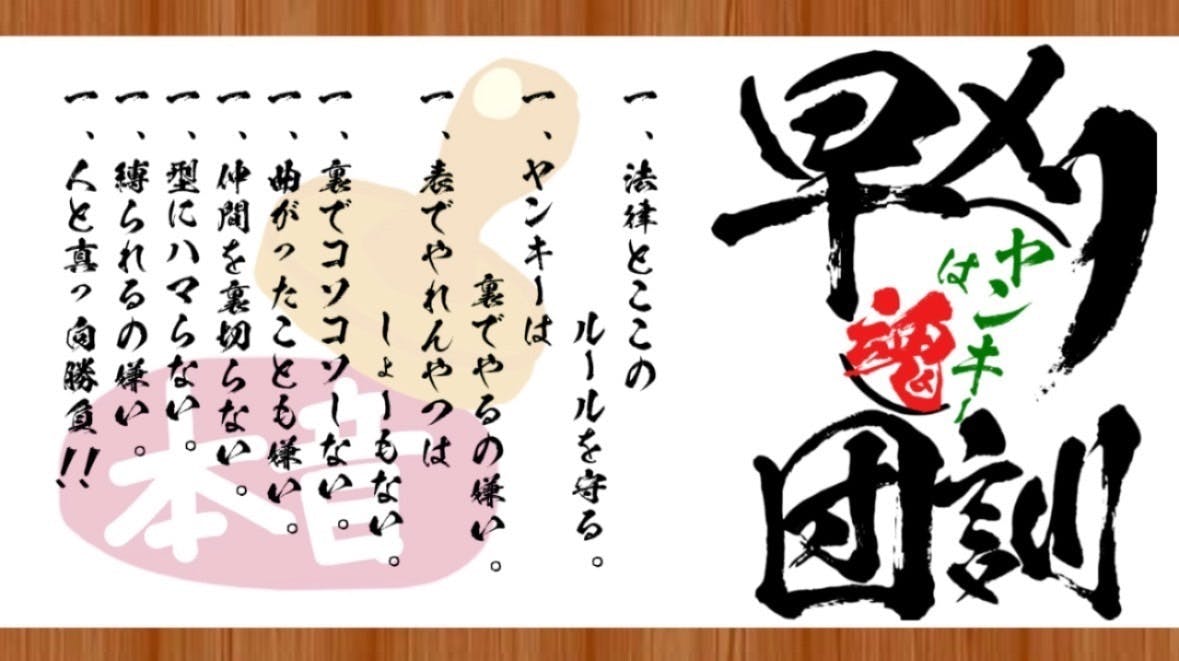 早刈
団訓
ヤンキー
は
魂
一、法律とここの
ルールを守る。
一、ヤンキーは
裏でやるの嫌い。
一、表でやれんやつは
しょーもない。
一、裏でコソコソしない。
一、曲がったことも嫌い。
一、仲間を裏切らない。
一、型にハマらない。
一、縛られるの嫌い。
一、人と真っ向勝負!!
本音